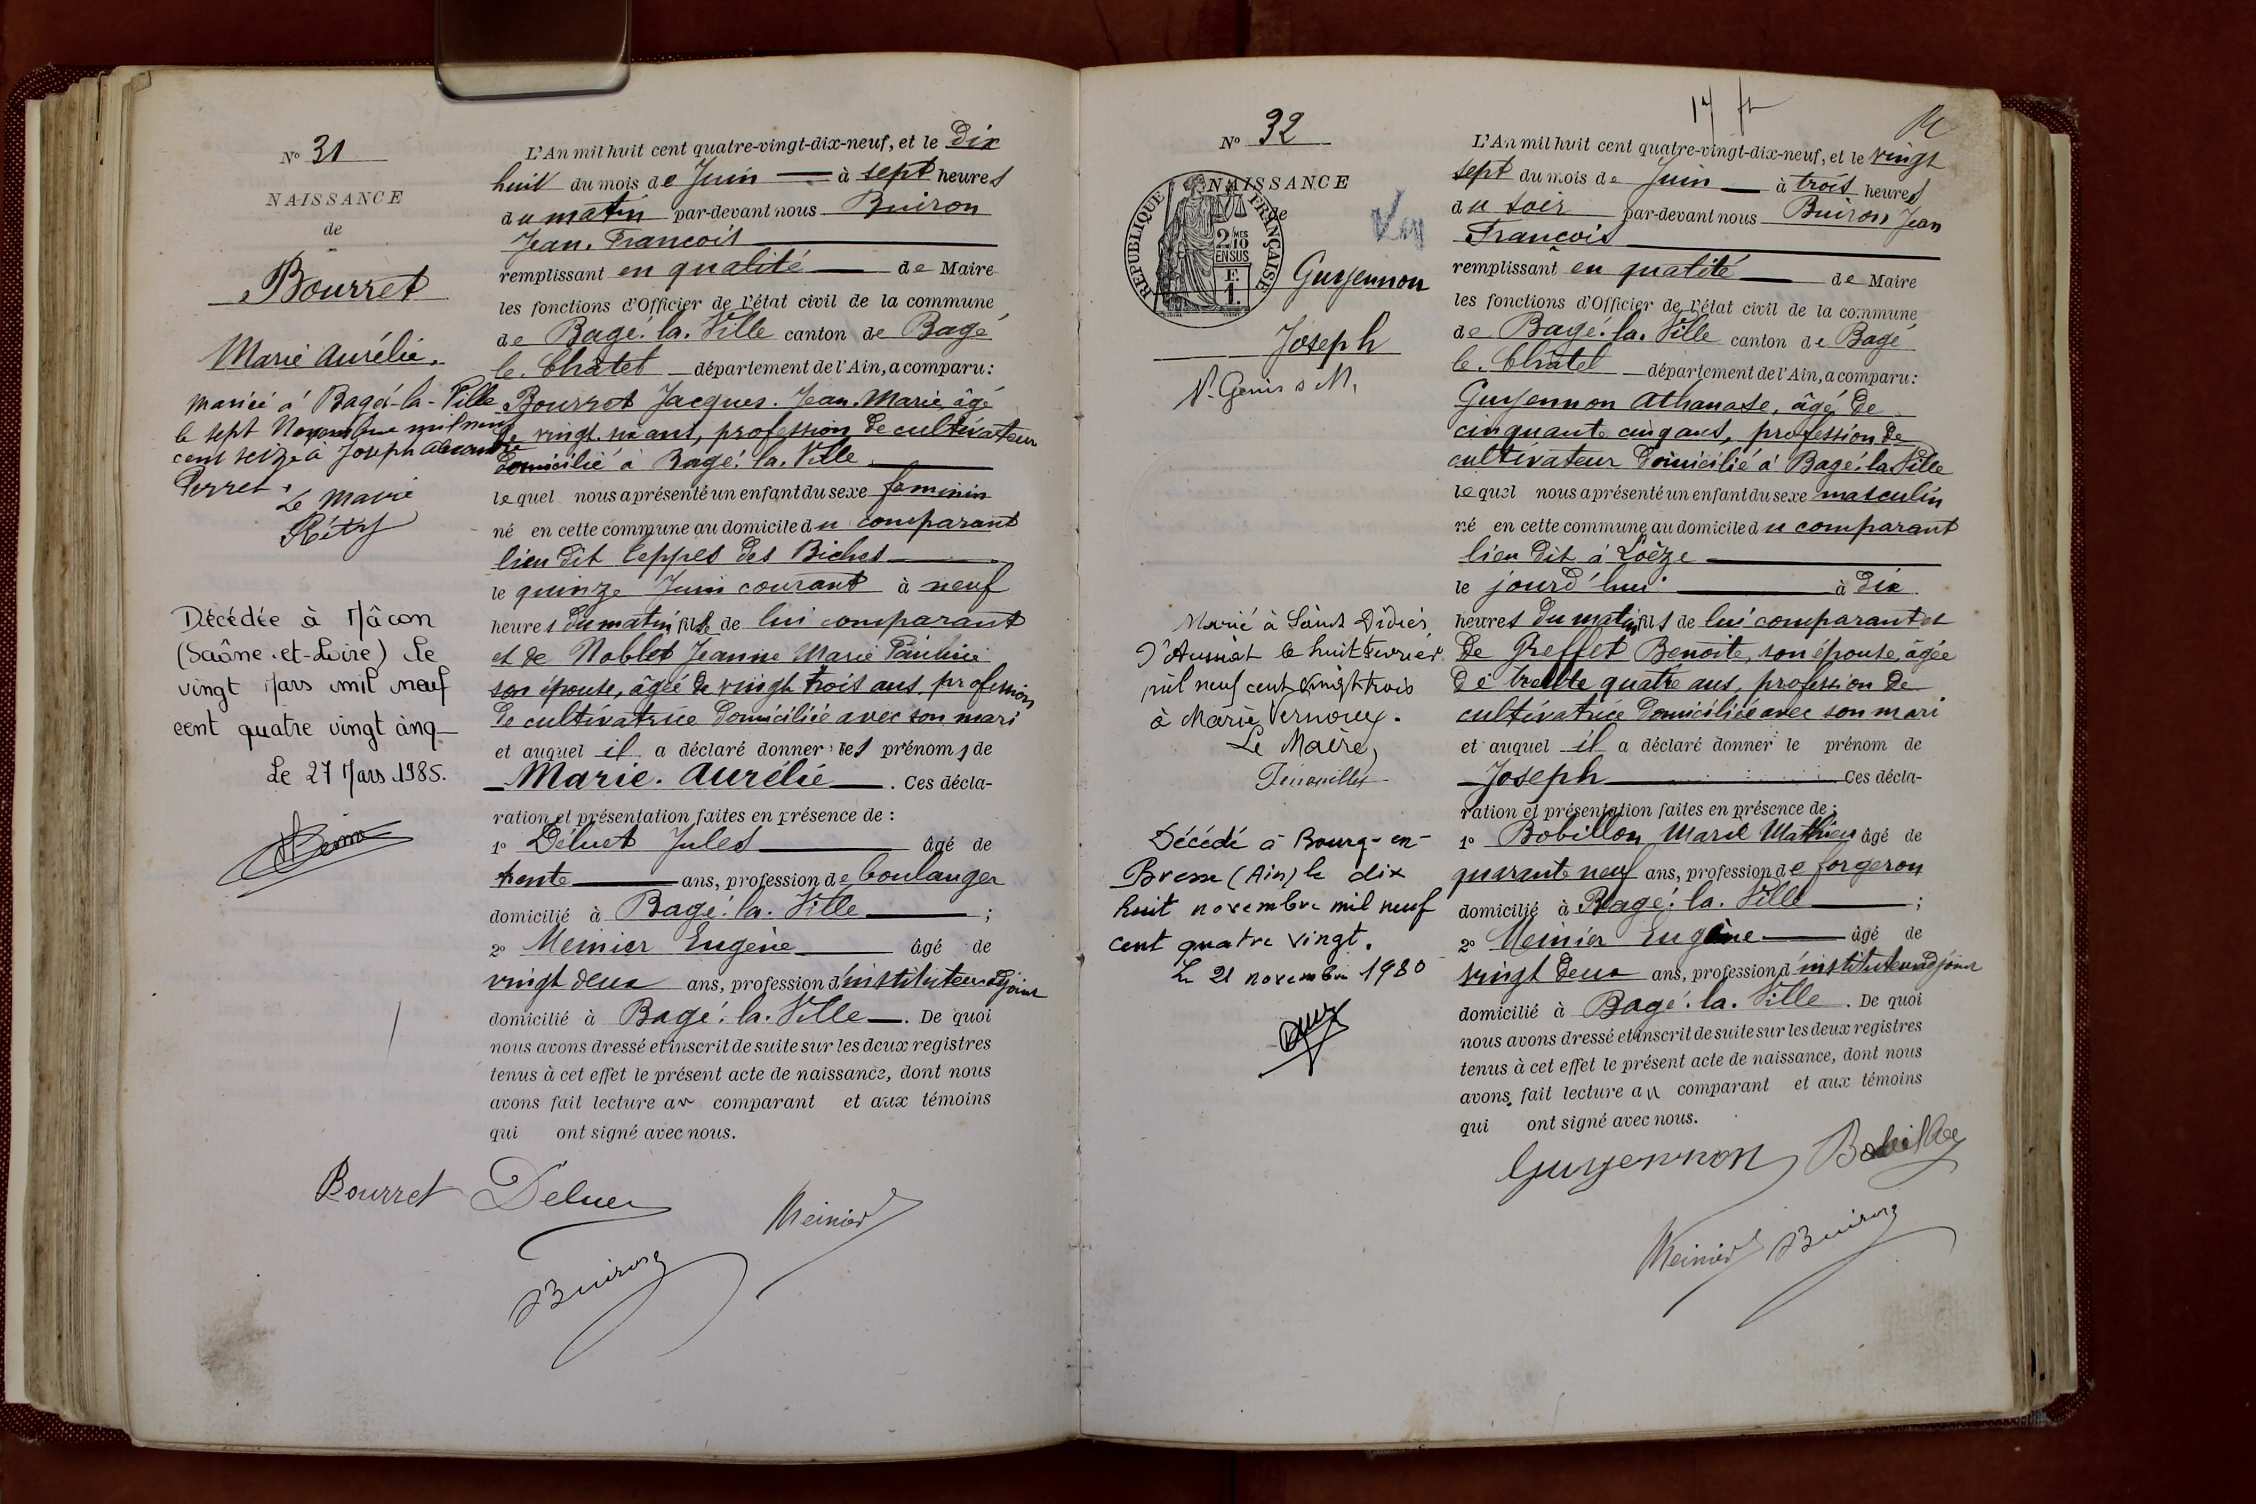 Nº 31
NAISSANCE
de
Bourret
Marie Aurélie.
Mariée à Bagé-la-Ville
le sept Novembre mil neuf
cent seize à Joseph
Perret.
Le Maire
Décédée à Mâcon
(Saône-et-Loire) le
vingt Mars mil neuf
cent quatre vingt cinq
Le 27 Mars 1985.
L'An mil huit cent quatre-vingt-dix-neuf, et le Dix
huit du mois de Juin à sept heures
du matin par-devant nous Buiron
Jean. François
remplissant en qualité de Maire
les fonctions d'Officier de l'état civil de la commune
de Bagé. la. Ville canton de Bagé
le. Châtel département de l'Ain, a comparu:
Bourret Jacques. Jean. Marie, âgé
de vingt six ans, profession de cultivateur
domicilié à Bagé. la. Ville
lequel nous a présenté un enfant du sexe féminin
né en cette commune au domicile du comparant
lieu dit Ceppes des Biches
le quinze Juin courant à neuf
heures du matin fille de lui comparant
et de Noblet Jeanne Marie Pauline
son épouse, âgée de vingt trois ans, profession
de cultivatrice domiciliée avec son mari
et auquel il a déclaré donner les prénoms de
Marie. Aurélie. Ces décla-
ration et présentation faites en présence de :
1º Déluet Jules âgé de
trente ans, profession de boulanger
domicilié à Bagé. la. Ville ;
2º Meinier Eugène âgé de
vingt deux ans, profession d'instituteur adjoint
domicilié à Bagé. la. Ville. De quoi
nous avons dressé et inscrit de suite sur les deux registres
tenus à cet effet le présent acte de naissance, dont nous
avons fait lecture au comparant et aux témoins
qui ont signé avec nous.
Bourret Deluet Meinier
Buiron
17
Nº 32
NAISSANCE
de
RÉPUBLIQUE FRANÇAISE
2 MES
10
EN SUS
F.
1.
Guyennon
Joseph
L'An mil huit cent quatre-vingt-dix-neuf, et le vingt
sept du mois de Juin à trois heures
du soir par-devant nous Buiron Jean
François
remplissant en qualité de Maire
les fonctions d'Officier de l'état civil de la commune
de Bagé. la. Ville canton de Bagé
le. Châtel département de l'Ain, a comparu:
Guyennon Athanase, âgé de
cinquante cinq ans, profession de
cultivateur domicilié à Bagé. la Ville
lequel nous a présenté un enfant du sexe masculin
né en cette commune au domicile du comparant
lieu dit à Loëze
le jourd'hui à dix
heures du matin fils de lui comparant et
de Greffet Benoite, son épouse, âgée
de trente quatre ans, profession de
cultivatrice domiciliée avec son mari
et auquel il a déclaré donner le prénom de
Joseph Ces décla-
ration et présentation faites en présence de ;
1º Bobillon Marie Mathieu âgé de
quarante neuf ans, profession de forgeron
domicilié à Bagé. la. Ville ;
2º Meinier Eugène âgé de
vingt deux ans, profession d'instituteur adjoint
domicilié à Bagé. la. Ville. De quoi
nous avons dressé et inscrit de suite sur les deux registres
tenus à cet effet le présent acte de naissance, dont nous
avons fait lecture au comparant et aux témoins
qui ont signé avec nous.
Marié à Saint Didier
d'Aussiat le huit Février
mil neuf cent vingt trois
à Marie Vernoux.
Le Maire,
Décédé à Bourg-en-
Bresse (Ain) le dix
huit novembre mil neuf
cent quatre vingt.
Le 21 novembre 1980
Guyennon Bobillon
Meinier Buiron